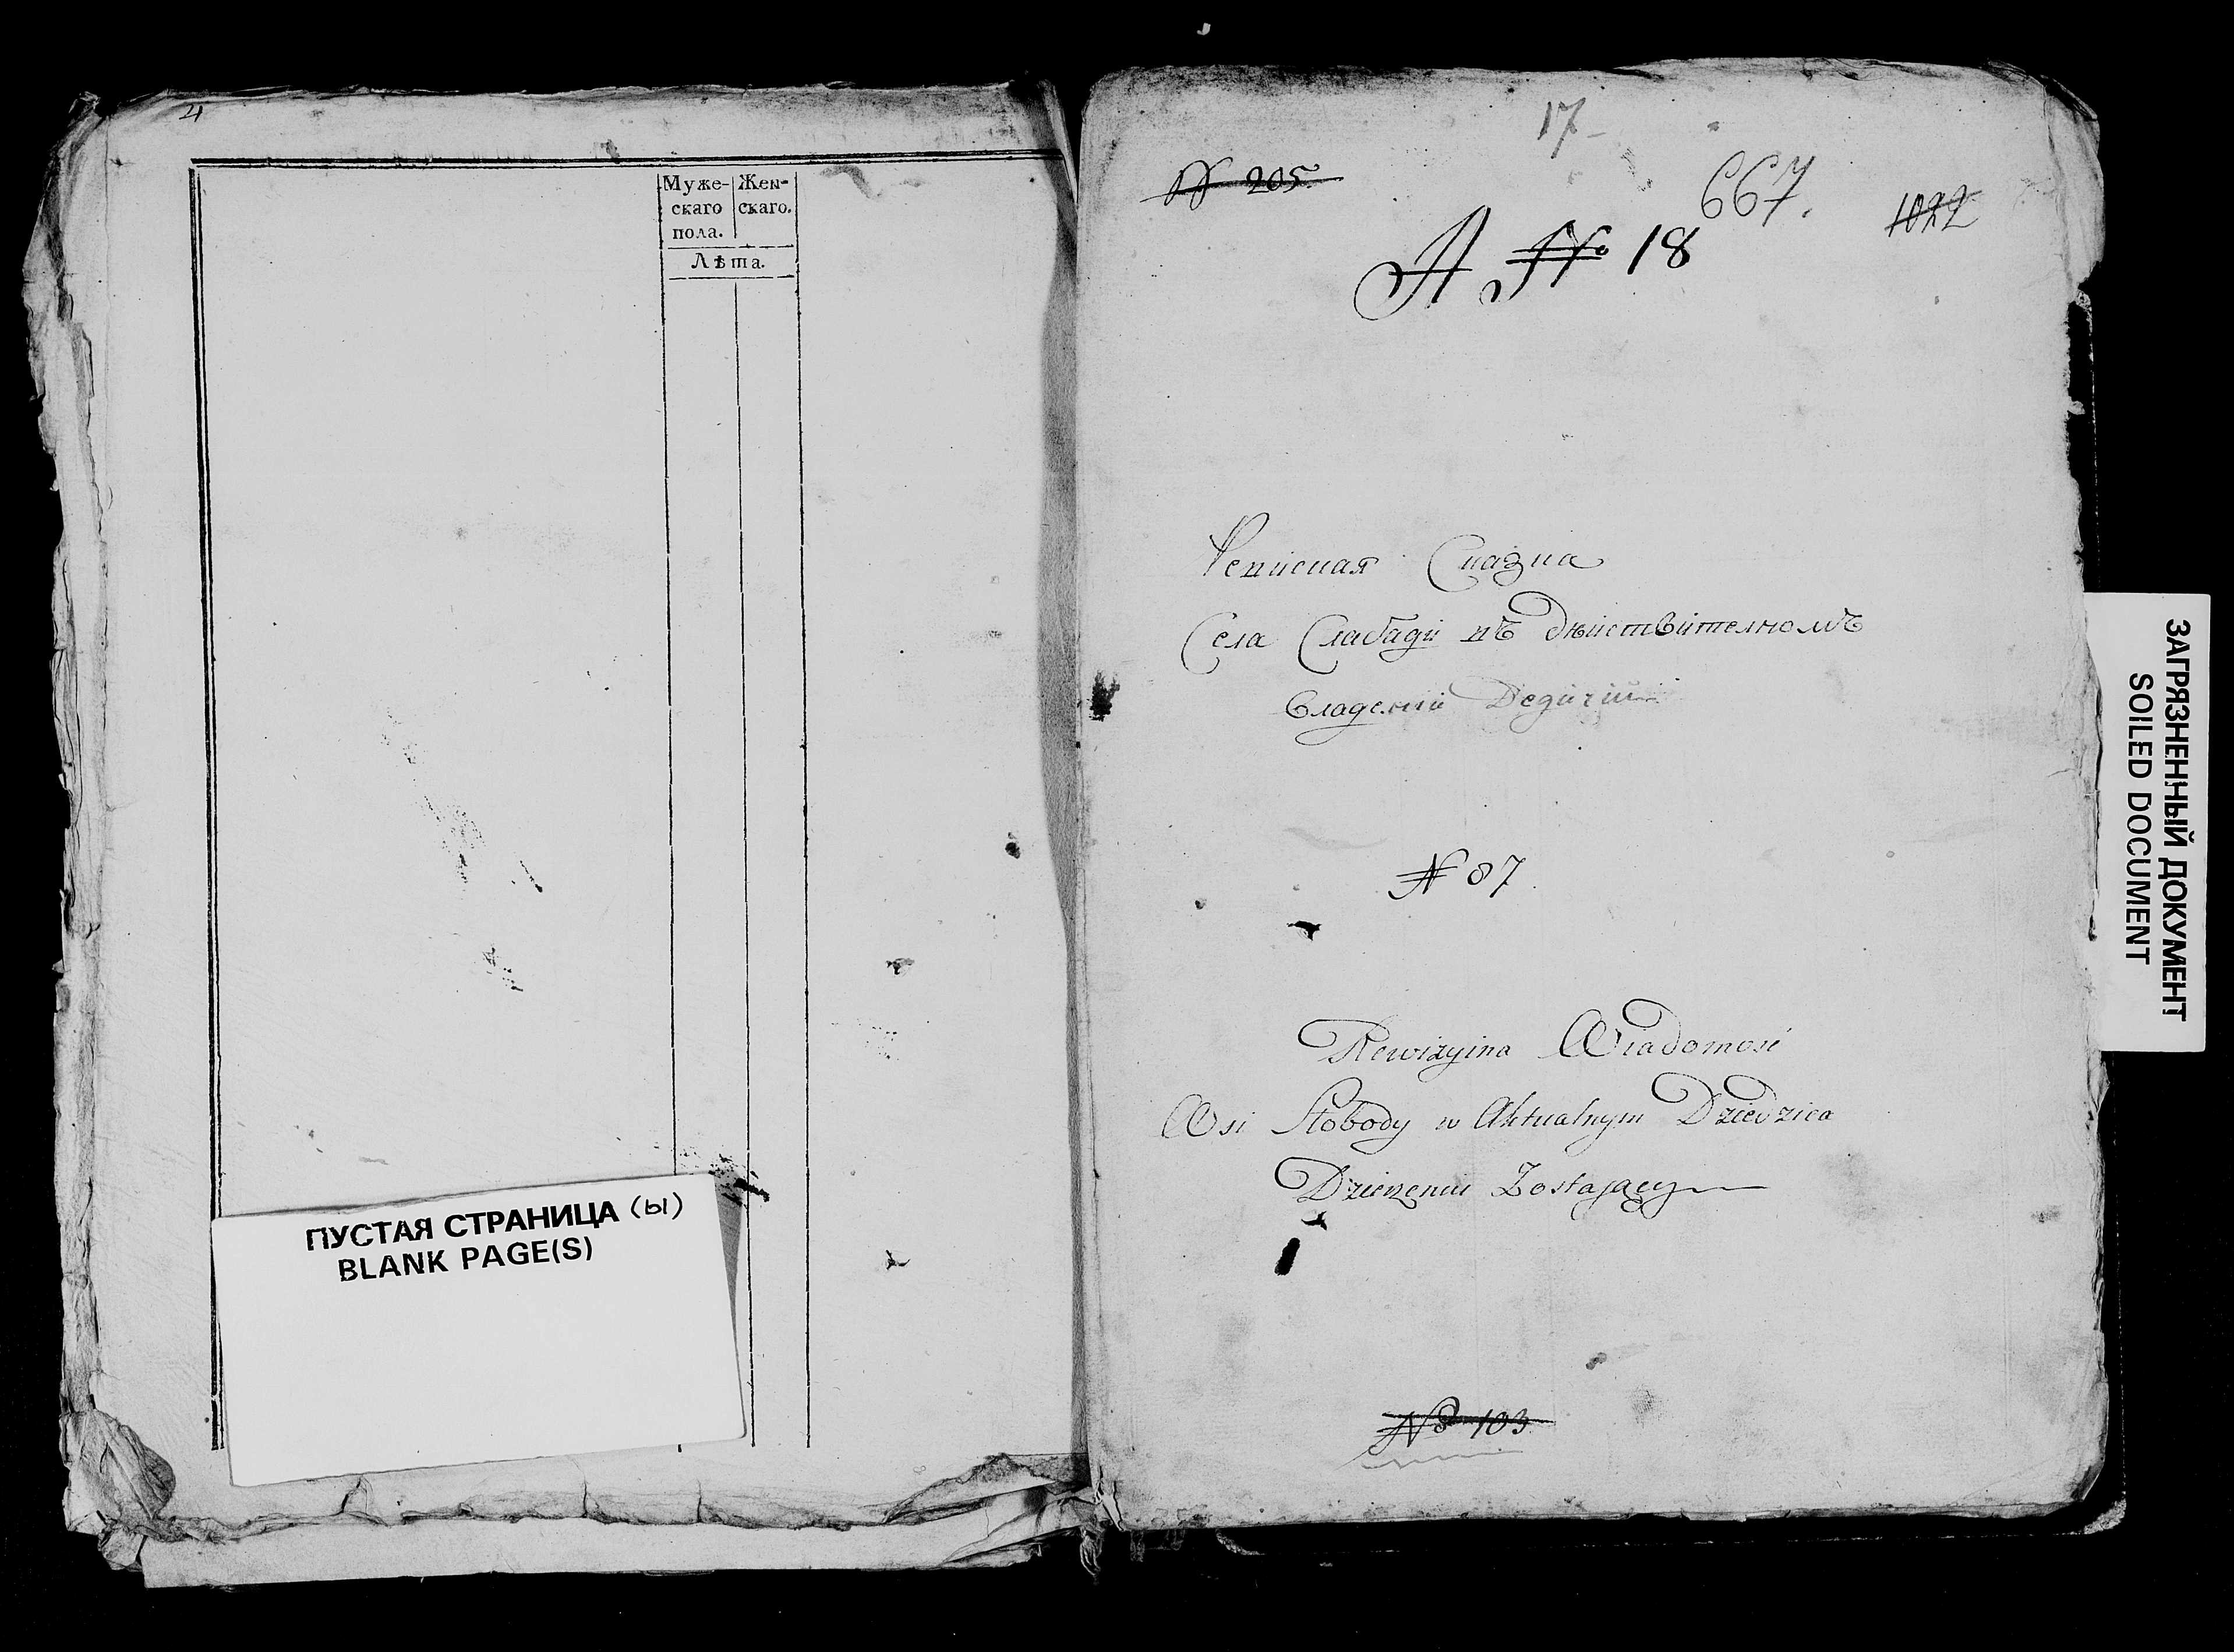 4
Муже- Жен-
скаго скаго.
пола.
Лѣта.
ПУСТАЯ СТРАНИЦА (ы)
BLANK PAGE(S)
17
№ 205.
667.
1022
A № 18
Сказка
Села Слабади въ дѣйствителномъ
Владении Дедичии
№ 87
Rewizyina Wiadomosć
Wsi Słobody w Aktualnym Dziedzica
Dzierzeniu Zostającey
№ 103
ЗАГРЯЗНЕННЫЙ ДОКУМЕНТ
SOILED DOCUMENT